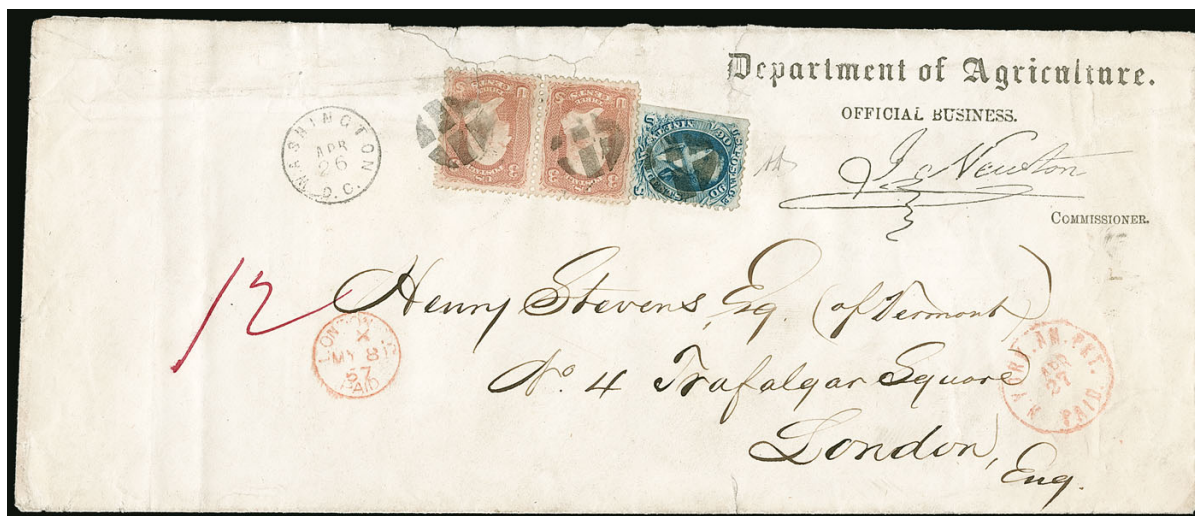 Department of Agriculture.
OFFICIAL BUSINESS.
J. Newton
COMMISSIONER.
WASHINGTON
APR
26
D.C.
12
Henry Stevens, Esq. (of Vermont)
No. 4 Trafalgar Square
London,
Eng.
LONDON
X
MY 8
67
PAID
YORK AM. PKT.
APR
27
PAID
U
3
U
3
U.S. POSTAGE
90